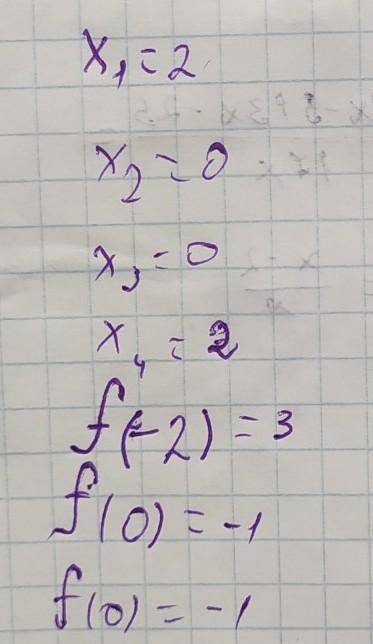 x₁ = 2
x₂ = 0
x₃ = 0
x₄ = 2
f(-2) = 3
f(0) = -1
f(0) = -1